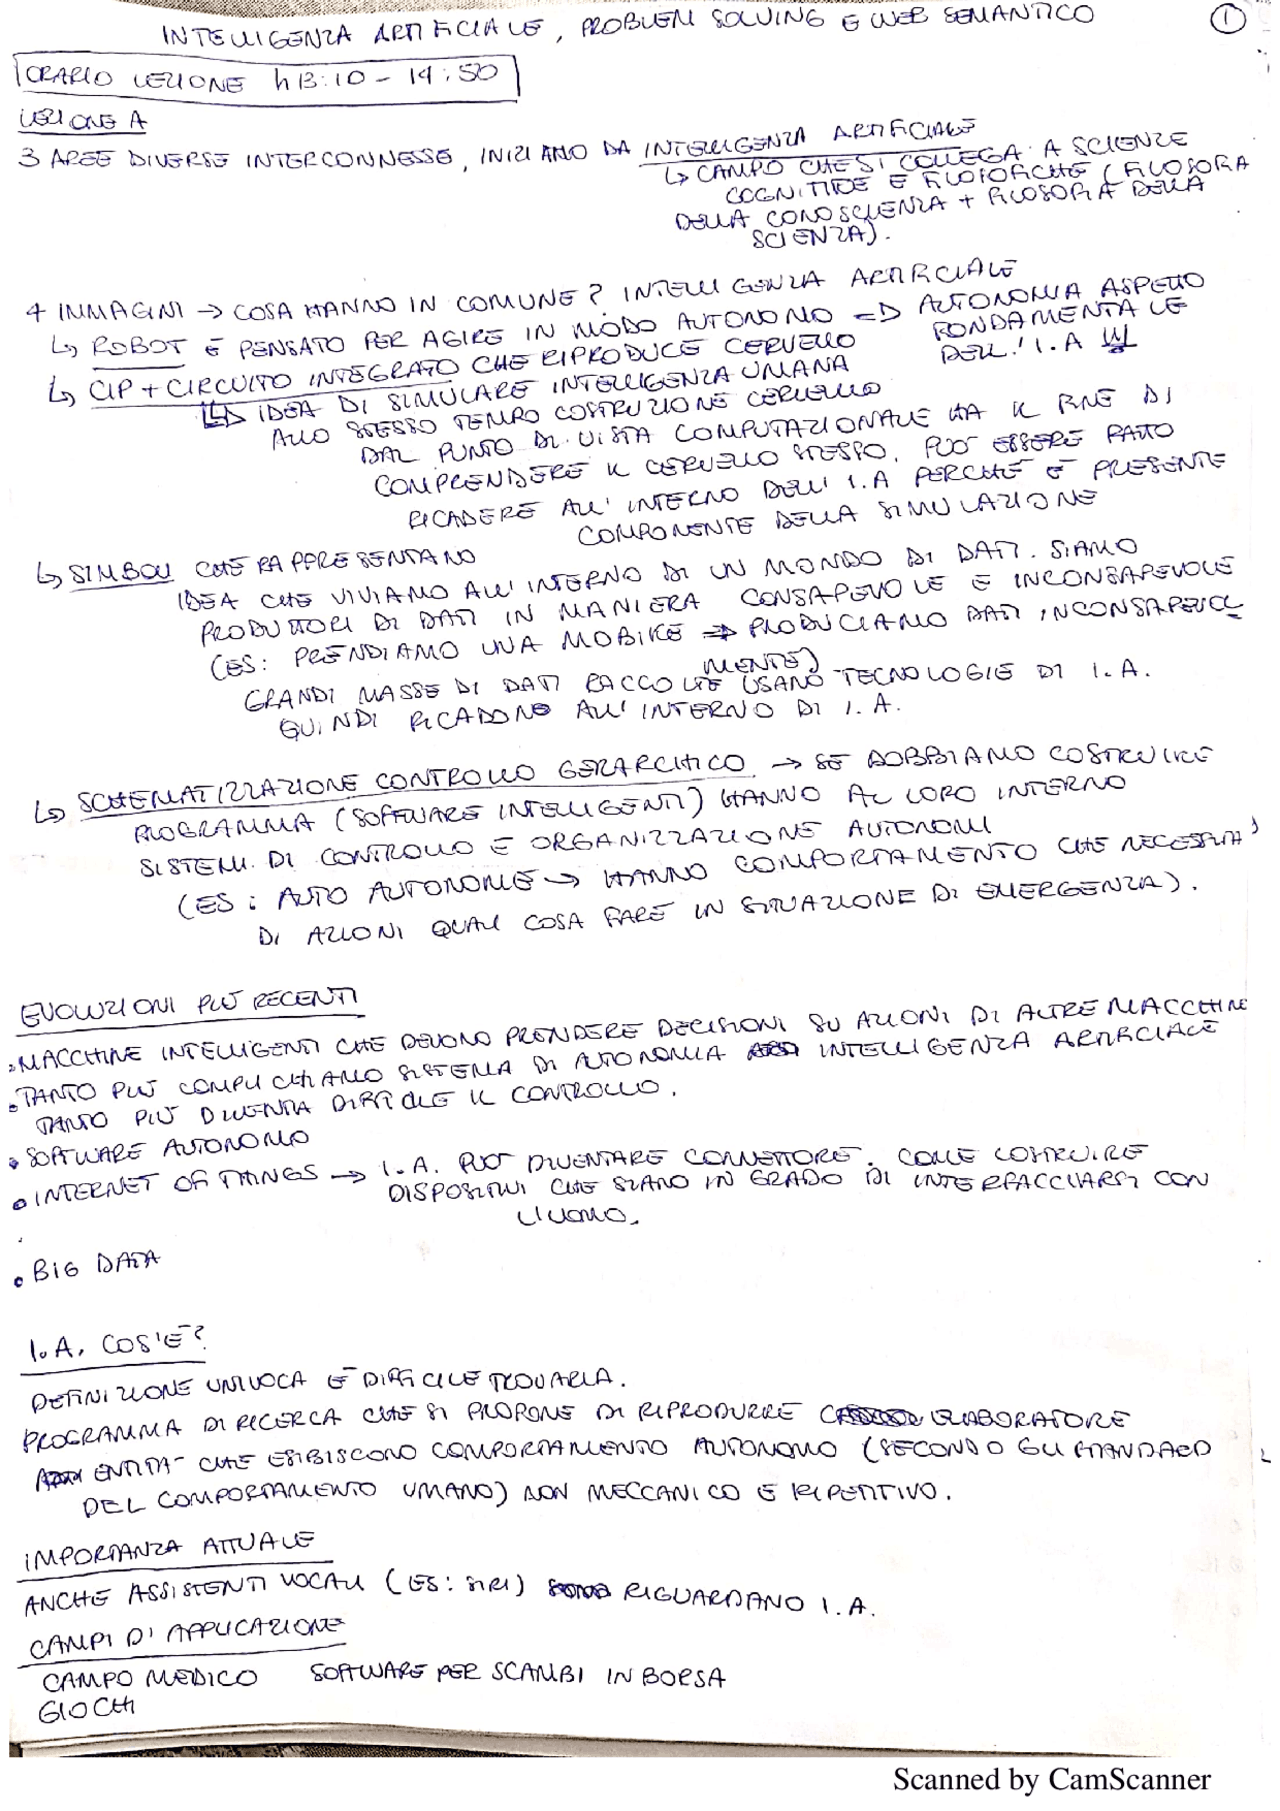 INTELLIGENZA ARTIFICIALE, PROBLEM SOLVING E WEB SEMANTICO
1
ORARIO LEZIONE h 13:10 - 14:50
LEZIONE A
3 AREE DIVERSE INTERCONNESSE, INIZIAMO DA INTELLIGENZA ARTIFICIALE
↳ CAMPO CHE SI COLLEGA A SCIENZE
COGNITIVE E FILOSOFICHE (FILOSOFIA
DELLA CONOSCIENZA + FILOSOFIA DELLA
SCIENZA).
4 IMMAGINI → COSA HANNO IN COMUNE? INTELLIGENZA ARTIFICIALE
↳ ROBOT È PENSATO PER AGIRE IN MODO AUTONOMO => AUTONOMIA ASPETTO
FONDAMENTALE
DELL'I.A
↳ CIP + CIRCUITO INTEGRATO CHE RIPRODUCE CERVELLO
↳ IDEA DI SIMULARE INTELLIGENZA UMANA
ALLO STESSO TEMPO COSTRUZIONE CERVELLO
DAL PUNTO DI VISTA COMPUTAZIONALE HA IL FINE DI
COMPRENDERE IL CERVELLO STESSO. PUÒ ESSERE FATTO
RICADERE ALL'INTERNO DELL'I.A PERCHÉ È PRESENTE
COMPONENTE DELLA SIMULAZIONE
↳ SIMBOLI CHE RAPPRESENTANO
IDEA CHE VIVIAMO ALL'INTERNO DI UN MONDO DI DATI. SIAMO
PRODUTTORI DI DATI IN MANIERA CONSAPEVOLE E INCONSAPEVOLE
(ES: PRENDIAMO UNA MOBIKE => PRODUCIAMO DATI INCONSAPEVOL
MENTE)
GRANDI MASSE DI DATI RACCOLTE USANO TECNOLOGIE DI I.A.
QUINDI RICADONO ALL'INTERNO DI I.A.
↳ SCHEMATIZZAZIONE CONTROLLO GERARCHICO → SE DOBBIAMO COSTRUIRE
PROGRAMMA (SOFTWARE INTELLIGENTI) HANNO AL LORO INTERNO
SISTEMI DI CONTROLLO E ORGANIZZAZIONE AUTONOMI
(ES: AUTO AUTONOME → HANNO COMPORTAMENTO CHE NECESSITA
DI AZIONI QUALI COSA FARE IN SITUAZIONE DI EMERGENZA).
EVOLUZIONI PIÙ RECENTI
• MACCHINE INTELLIGENTI CHE DEVONO PRENDERE DECISIONI SU AZIONI DI ALTRE MACCHINE
• TANTO PIÙ COMPLICHIAMO SISTEMA DI AUTONOMIA INTELLIGENZA ARTIFICIALE
TANTO PIÙ DIVENTA DIFFICILE IL CONTROLLO.
• SOFTWARE AUTONOMO
• INTERNET OF THINGS → I.A. PUÒ DIVENTARE CONNETTORE. COME COSTRUIRE
DISPOSITIVI CHE SIANO IN GRADO DI INTERFACCIARSI CON
L'UOMO.
• BIG DATA
I.A. COS'È?
DEFINIZIONE UNIVOCA È DIFFICILE TROVARLA.
PROGRAMMA DI RICERCA CHE SI PROPONE DI RIPRODURRE ELABORATORE
ENTITÀ CHE ESIBISCONO COMPORTAMENTO AUTONOMO (SECONDO GLI STANDARD
DEL COMPORTAMENTO UMANO) NON MECCANICO E RIPETITIVO.
IMPORTANZA ATTUALE
ANCHE ASSISTENTI VOCALI (ES: SIRI) RIGUARDANO I.A.
CAMPI D'APPLICAZIONE
CAMPO MEDICO SOFTWARE PER SCAMBI IN BORSA
GIOCHI
Scanned by CamScanner